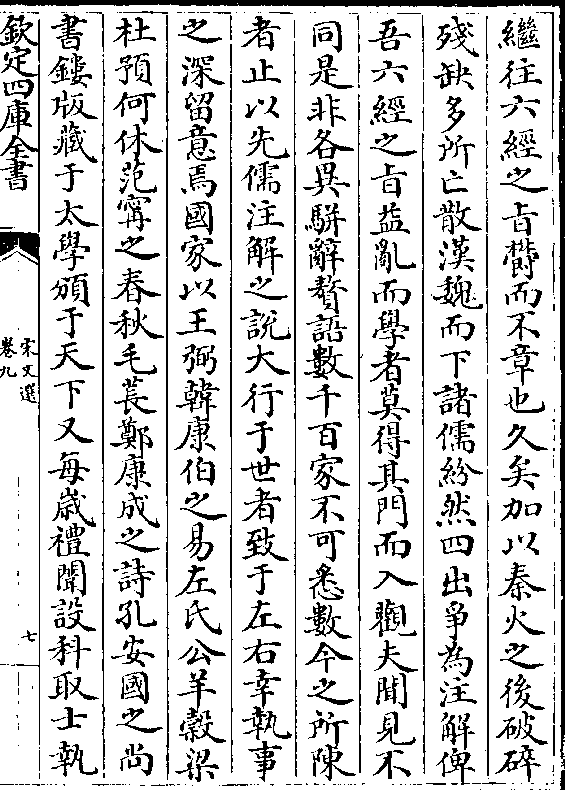 繼往六經之旨欝而不章也久矣加以秦火之後破碎
殘缺多所亡散漢魏而下諸儒紛然四出爭為注解俾
吾六經之旨益亂而學者莫得其門而入觀夫聞見不
同是非各異駢辭贅語數千百家不可悉數今之所陳
者止以先儒注解之說大行于世者致于左右幸執事
之深留意焉國家以王弼韓康伯之易左氏公羊穀梁
杜預何休范寗之春秋毛萇鄭康成之詩孔安國之尚
書鏤版藏于太學頒于天下又每歲禮闈設科取士執
欽定四庫全書
宋文選
卷九
七